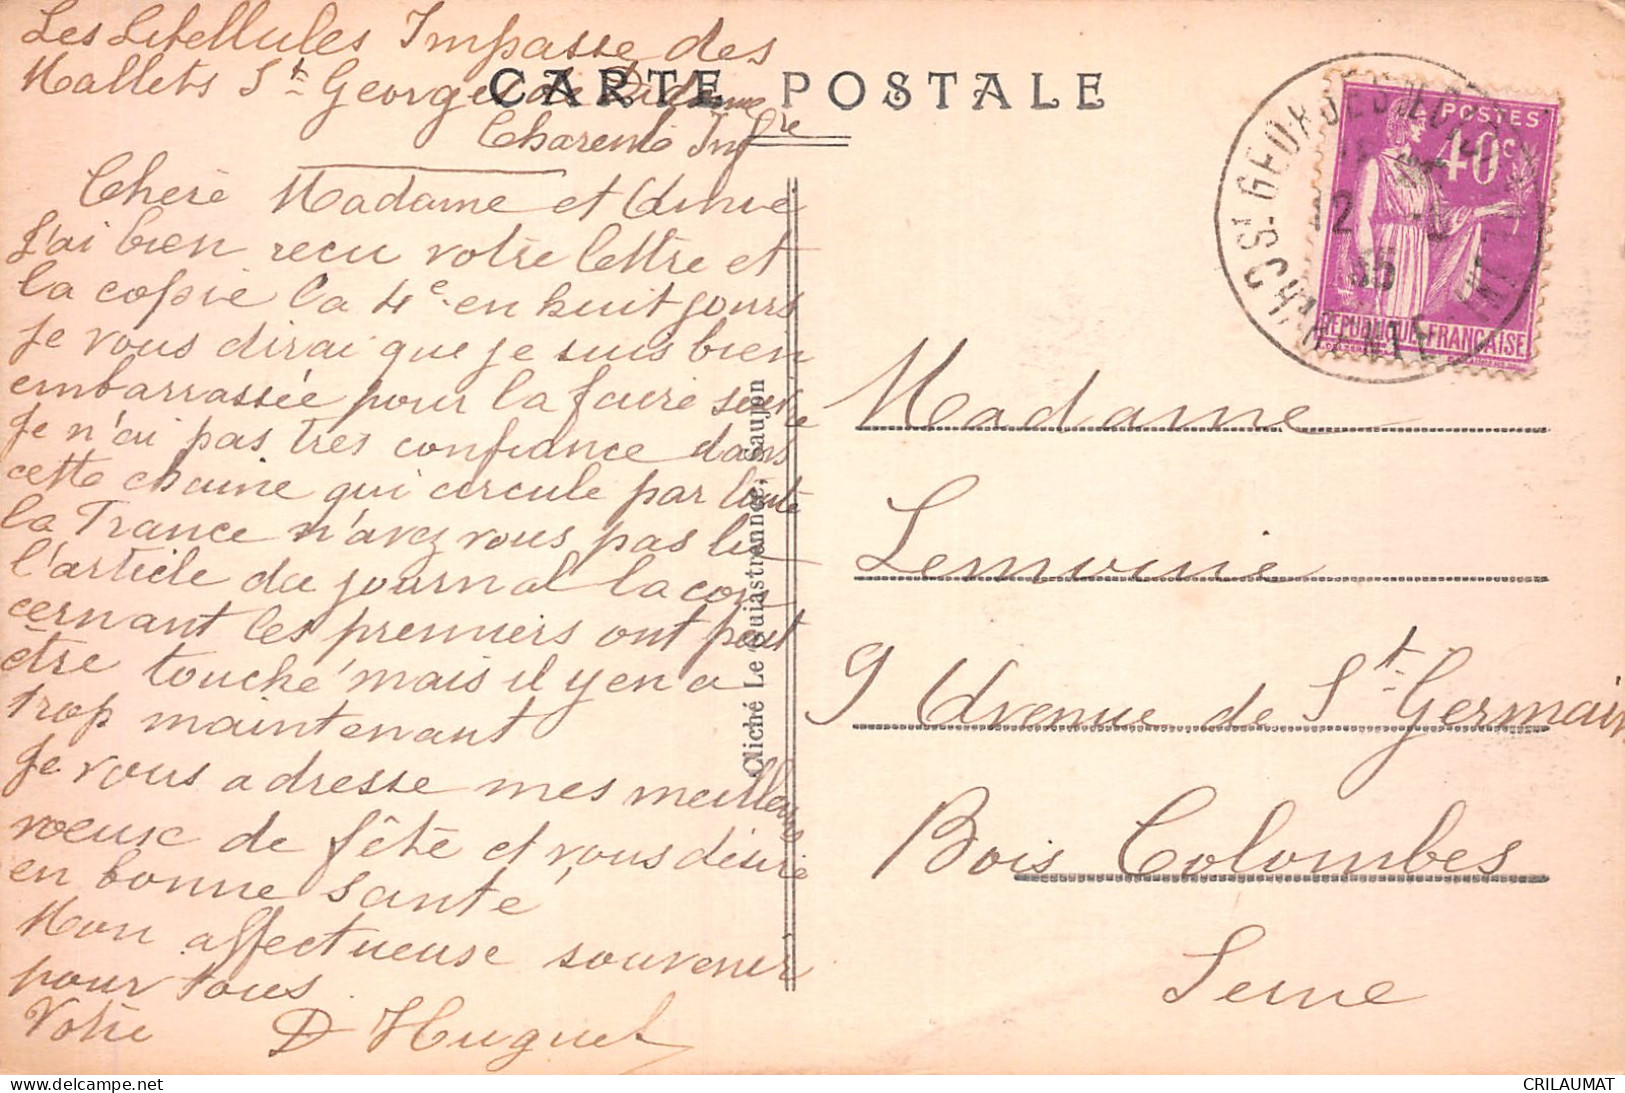 Les Libellules Impasse des
Mallets St Georges de Didonne
Charente Infre
CARTE POSTALE
Chère Madame et Amie
J'ai bien reçu votre lettre et
la copie la 4e en huit jours
je vous dirai que je suis bien
embarrassée pour la faire suivre
Je n'ai pas tres confiance dans
cette chaine qui circule par toute
la France n'avez vous pas lu
l'article du journal la con
cernant les premiers ont peut
être touché mais il y en a
trop maintenant
Je vous adresse mes meilleurs
voeux de fête et vous désire
en bonne santé
Mon affectueuse souvenir
pour tous
Votre D Huguet
Cliché Le Guiastrennec, Saujon
POSTES
40c
REPUBLIQUE FRANÇAISE
ST GEORGES
12
35
CHARENTE INF
Madame
Lemoine
9 Avenue de St Germain
Bois Colombes
Seine
delcampe.net
CRILAUMAT